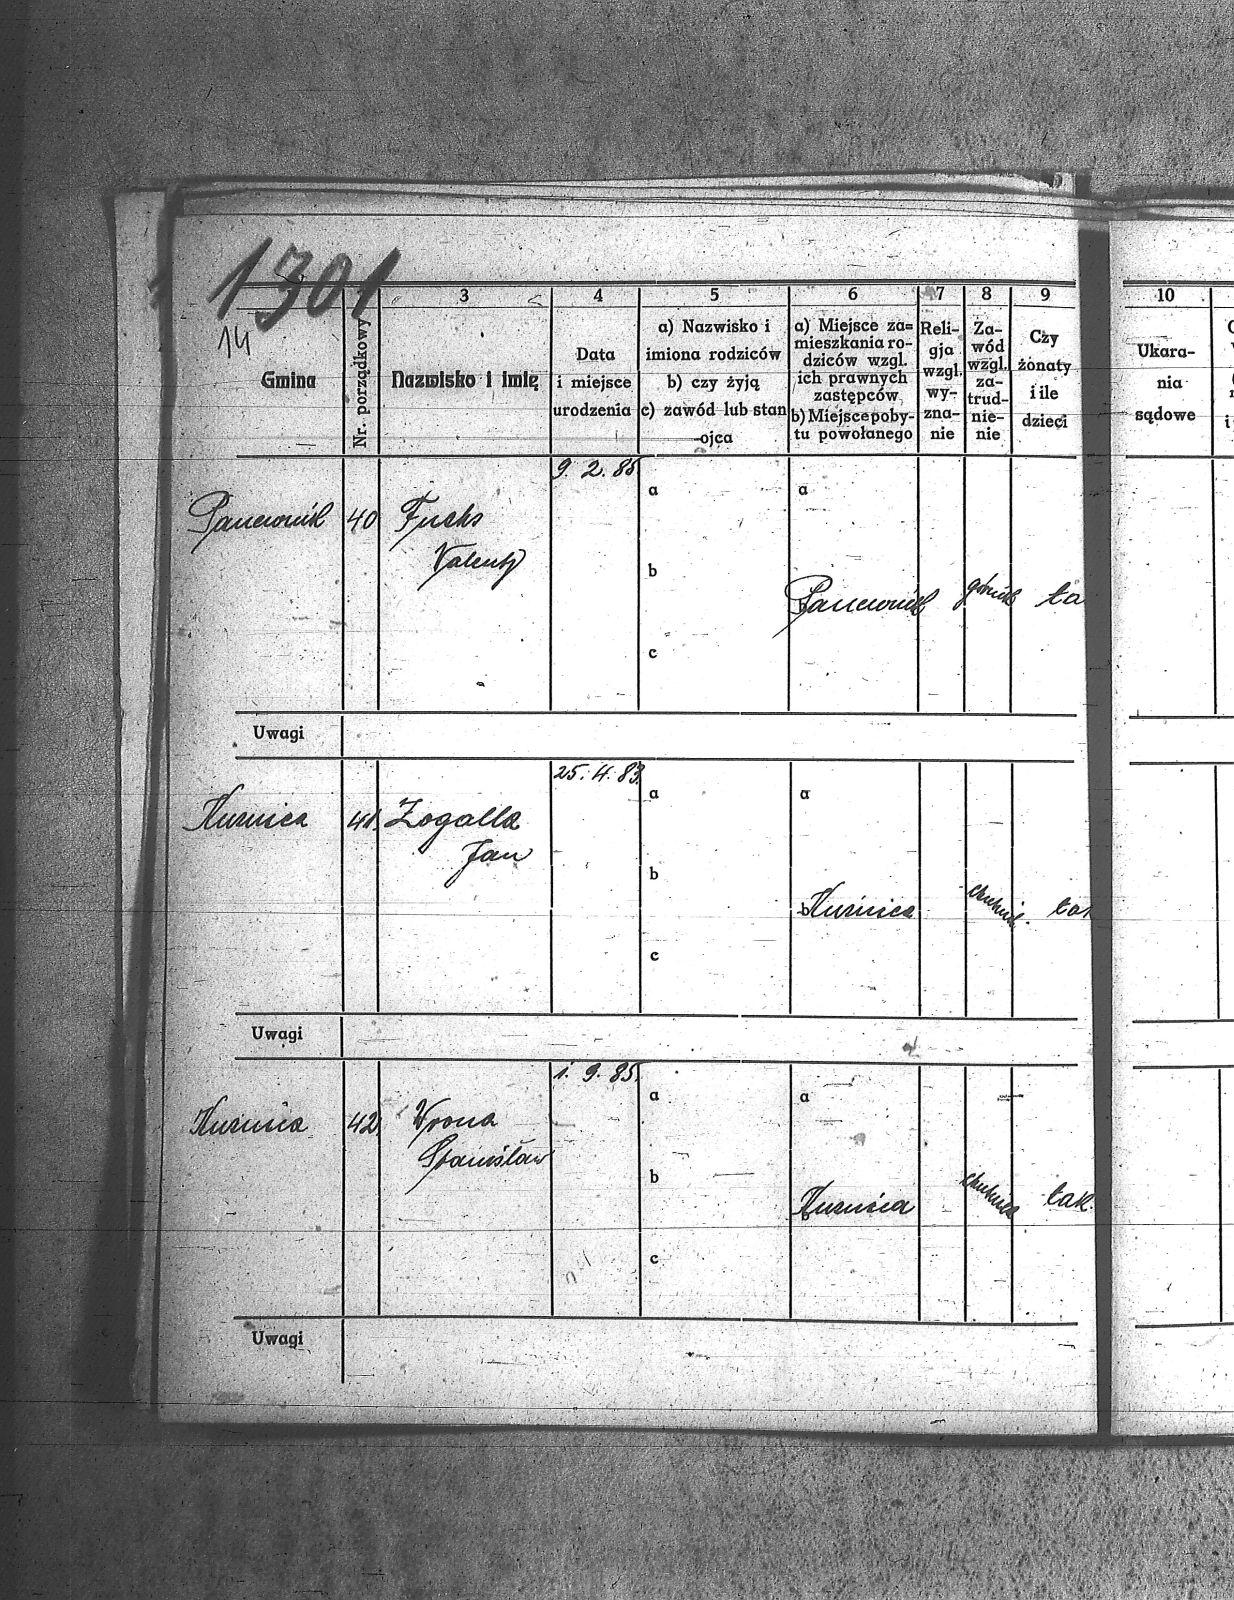 1301
14
Gmina
Nr. porządkowy
3
Nazwisko i imię
4
Data
i miejsce
urodzenia
5
a) Nazwisko i
imiona rodziców
b) czy żyją
c) zawód lub stan
ojca
6
a) Miejsce za=
mieszkania ro-
dziców wzgl.
ich prawnych
zastępców
b) Miejsce poby-
tu powołanego
7
Reli-
gja
wzgl.
wy-
zna-
nie
8
Za-
wód
wzgl.
za-
trud-
nie-
nie
9
Czy
żonaty
i ile
dzieci
10
Ukara-
nia
sądowe
Panewnik
40
Fuchs
Valenty
9. 2. 85
a
b
c
a
Panewnik
górnik
ta
Uwagi
Kuźnica
41.
Zogalla
Jan
25. 4. 83.
a
b
c
a
b
Kuźnica
tak
Uwagi
Kuźnica
42
Wrona
Stanisław
1. 9. 85.
a
b
c
a
b
Kuźnica
tak.
Uwagi